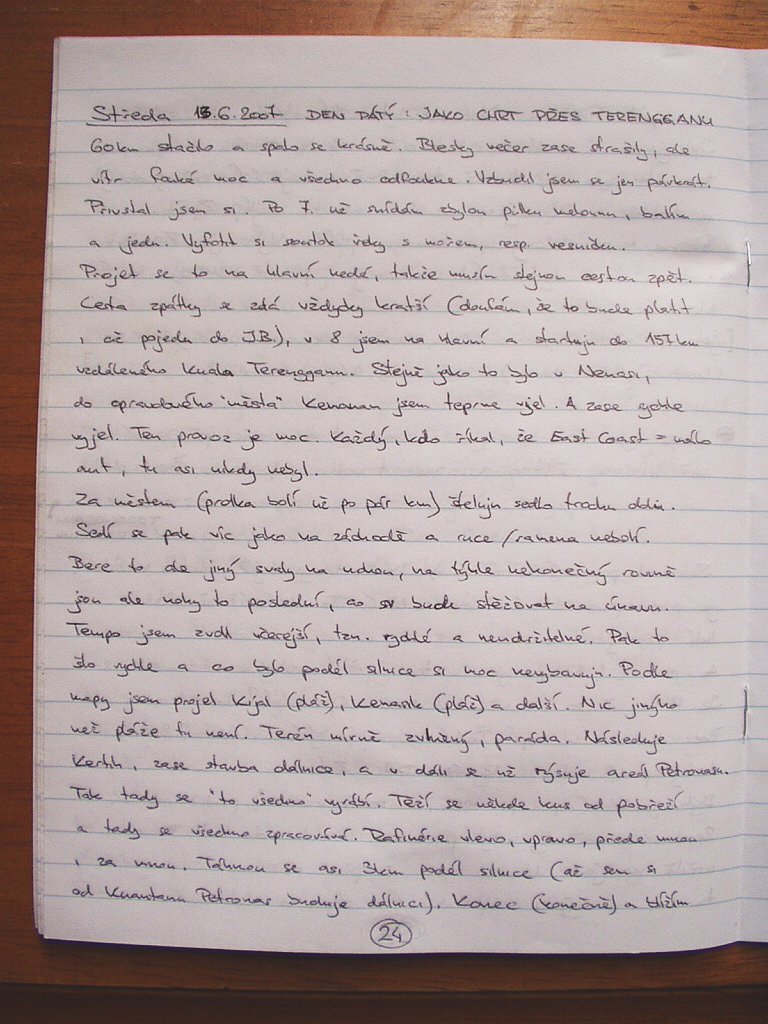 Středa 13.6.2007 DEN PÁTÝ: JAKO CHRT PŘES TERENGGANU
60km stačilo a spalo se krásně. Blesky večer zase strašily, ale
vítr foukal moc a všechno odfoukne. Vzbudil jsem se jen párkrát.
Přivstal jsem si. Po 7. už snídám zbylou půlku melounu, balím
a jedu. Vyfotit si soutok řeky s mořem, resp. vesničku.
Projet se to na hlavní nedá, takže musím stejnou cestou zpět.
Cesta zpátky se zdá vždycky kratší (doufám, že to bude platit
i, až pojedu do J.B.), v 8 jsem na hlavní a startuju do 157km
vzdáleného Kuala Terengganu. Stejně jako to bylo v Nenasi,
do opravdového "města" Kemaman jsem teprve vjel. A zase rychle
vyjel. Ten provoz je moc. Každý, kdo říkal, že East Coast = málo
aut, tu asi nikdy nebyl.
Za městem (prdka bolí už po pár km) šteluju sedlo trochu dolů.
Sedí se pak víc jako na záchodě a ruce/ramena nebolí.
Bere to ale jiný svaly na nohou, na týhle nekonečný rovině
jsou ale nohy to poslední, co si bude stěžovat na únavu.
Tempo jsem zvolil včerejší, tzn. rychlé a neudržitelné. Pak to
šlo rychle a co bylo podél silnice si moc nevybavuju. Podle
mapy jsem projel Kijal (pláž), Kemasik (pláž) a další. Nic jinýho
než pláže tu není. Terén mírně zvlněný, paráda. Následuje
Kertih, zase stavba dálnice, a v dáli se už rýsuje areál Petronasu.
Tak tady se "to všechno" vyrábí. Těží se někde kus od pobřeží
a tady se všechno zpracovává. Rafinérie vlevo, vpravo, přede mnou
i za mnou. Táhnou se asi 3km podél silnice (až sem si
od Kuantanu Petronas buduje dálnici). Konec (konečně) a blížím
24